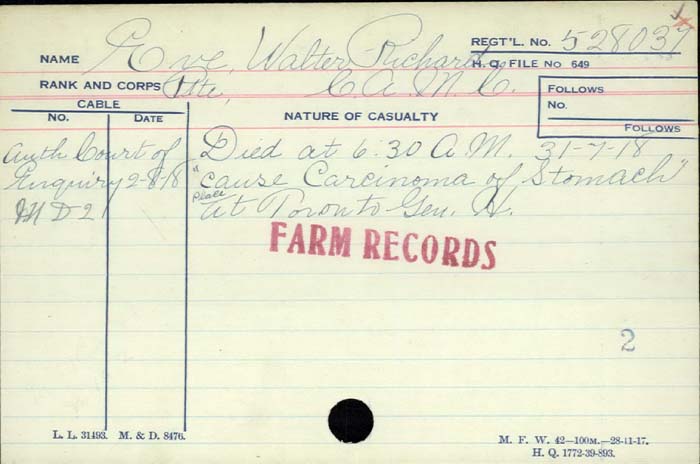 NAME Eve, Walter Richard REGT'L. No. 528037
H. Q. FILE No 649
RANK AND CORPS Pte, C. A. M. C.
FOLLOWS
No.
FOLLOWS
CABLE
No. DATE NATURE OF CASUALTY
Auth Court of Died at 6.30 A.M. 31-7-18
Enquiry 2-8-18 "cause Carcinoma of Stomach"
M D 2 Place at Toronto Gen. H.
FARM RECORDS
2
L. L. 31493. M. & D. 8476.
M. F. W. 42—100M.—28-11-17.
H. Q. 1772-39-893.